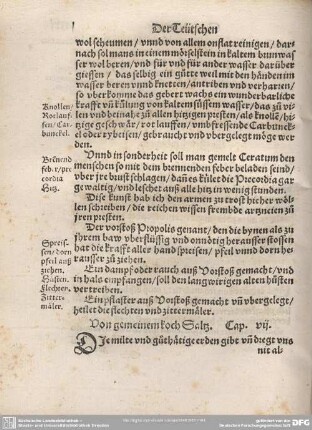 Der Teütschen
wol scheumen / vnnd von allem onflat reinigen / dar-
nach sol mans in einem mörselstein in kaltem brunwas
ser wol beren / vnd für vnd für ander wasser darüber
giessen / das selbig ein gůtte weil mit den händen im
wasser beren vnnd knetten / antriben vnd verharten /
so vberkomme das gebert wachs ein wunderbarliche
krafft vň külung von kaltem süssem wasser / das zů vi-
len vnd beinahe zů allen hitzigen presten / als knollē / hi-
tzige geschwär / rot lauffen / vmbfressende Carbunck-
el oder rybeisen / gebraucht vnd vbergelegt möge wer
den.
Knollen /
Rotlauf-
fen / Car-
bunckel.
Vnnd in sonderheit soll man gemelt Ceratum den
menschen so mit dem brennenden feber beladen seind /
vber jre brust schlagen / dan es kület die Precordia gar
gewaltig / vnd leschet auß alle hitz in wenig stunden.
Brünend
feb. vň pre
cordia
Hitz.
Dise kunst hab ich den armen zu trost hieher wöl-
len schreiben / die reichen wissen frembde artzneien zů
jren presten.
Der vorstoß Propolis genant / den die bynen als zů
jhrem baw vberflüssig vnd onnötig herausser stossen
hat die krafft aller hand spreisen / pfeil vnnd dorn he-
rausser zů ziehen.
Spreis-
sen / dorn
pfeil auß
ziehen.
Ein dampf oder rauch auß Vorstoß gemacht / vnd
in hals empfangen / soll den langwirigen alten hůsten
vertreiben.
Hůsten.
Ein pflaster auß Vorstoß gemacht vň vbergelegt /
heilet die flechten vnd zittermäler.
Flechten.
Zitter-
mäler.
Von gemeinem koch Saltz. Cap. vij.
Die milte vnd gůthätige erden gibt vň dregt vns
nit al-